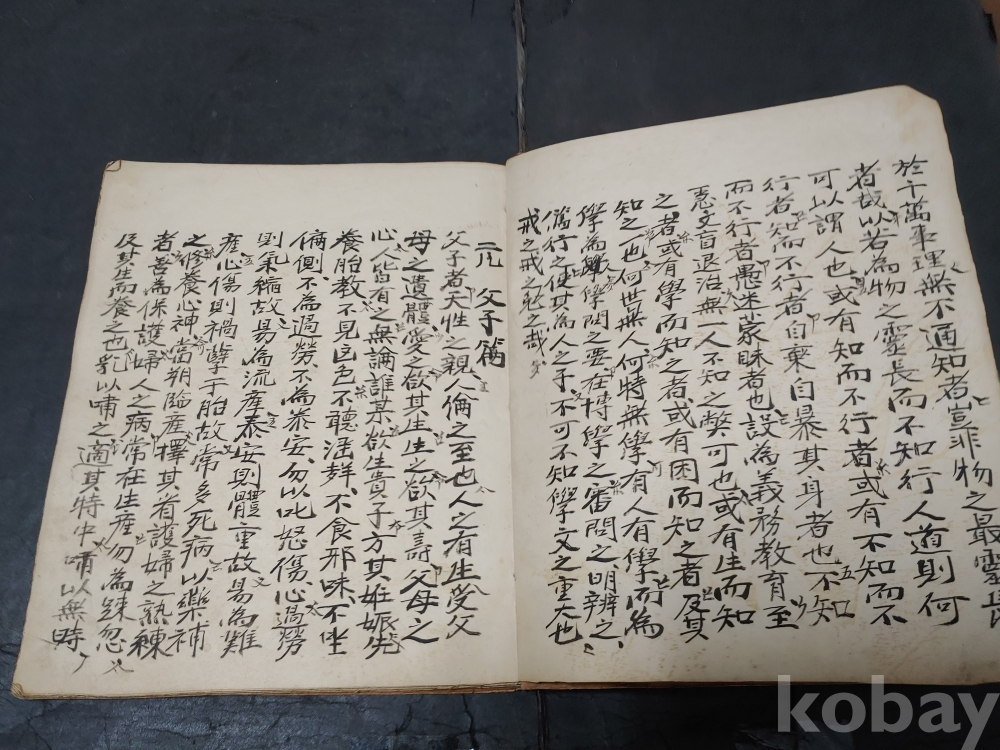 於千萬事理無不通知者豈非物之最靈長
者哉以若為物之靈長而不知行人道則何
可以謂人也或有知而不行者或有不知而不
行者知而不行者自棄自暴其身者也不知
而不行者愚迷蒙昧者也設為義務教育至
惡文盲退治無一人不知之弊可也或有生而知
之者或有學而知之者或有困而知之者及其
知之一也何世無人何特無學有人有學而為
學為難學問之要在博學之審問之明辨之
篤行之使其為人之子不可不知學文之重大也
戒之戒之甚之哉
二凡 父子篇
父子者天性之親人倫之至也人之有生受父
母之遺體愛之欲其生生之欲其壽父母之
心人皆有之無論誰某欲生貴子方其妊娠先
養胎教不見色不聽淫聲不食邪味不坐
偏側不為過勞不為泰安勿以叱怒傷心過勞
則氣縮故易為流產泰安則體重故易為難
產心傷則禍孽于胎故常多死病以樂補
之修養心神當朔臨產擇其省護婦之熟練
者善為保護婦人之病常在生產勿為疎忽
及其生而養之也乳以哺之適其特中哺以無時
kobay